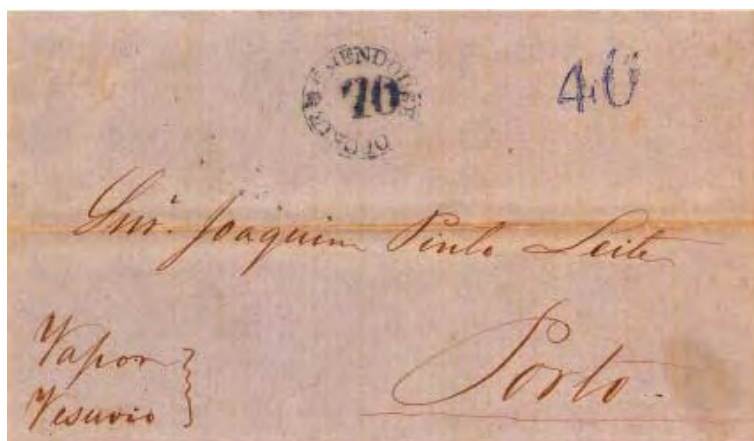 70
Snr. Joaquim Pinto Leite
Porto.
Vapor
Vesuvio